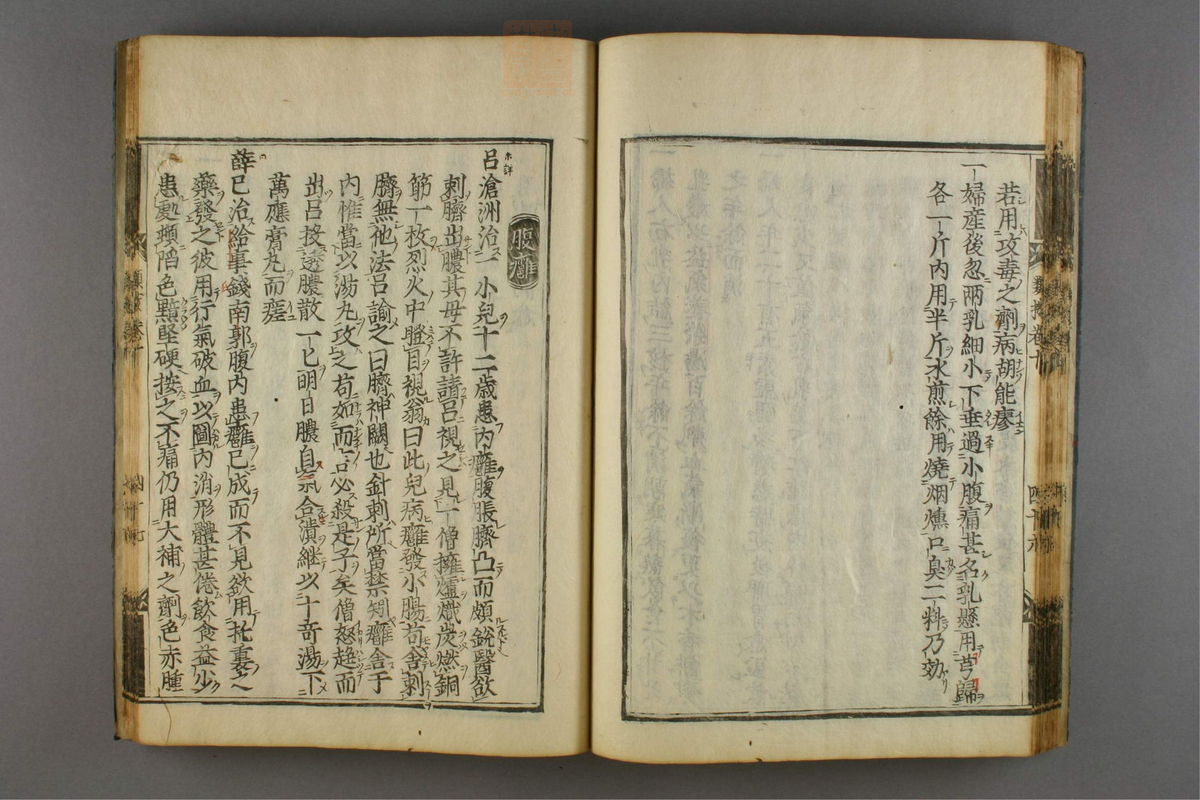 若用攻毒之劑病胡能瘳
一婦産後忽兩乳細小下垂過小腹痛甚名乳懸用芎歸
各一斤內用半斤水煎餘用燒烟燻口臭二料乃効
腹癰
呂滄洲治一小兒十二歲患內癰腹脹臍凸而頗銳醫欲
刺臍出膿其母不許請呂視之見一僧擁爐熾炭燃銅
筯一枚烈火中瞪目視翁曰此兒病癰發小腸苟舍刺
臍無他法呂諭之曰臍神闕也針刺所當禁矧癰舍于
內惟當以湯丸攻之苟如而言必殺是子矣僧怒趨而
出呂投透膿散一匕明日膿自氣合潰繼以十奇湯下
萬應膏丸而瘥
薛已治給事錢南郭腹內患癰已成而不見欲用托裏之
藥發之彼用行氣破血以圖內消形體甚倦飲食益少
患處頓陷色黯堅硬按之不痛仍用大補之劑色赤腫